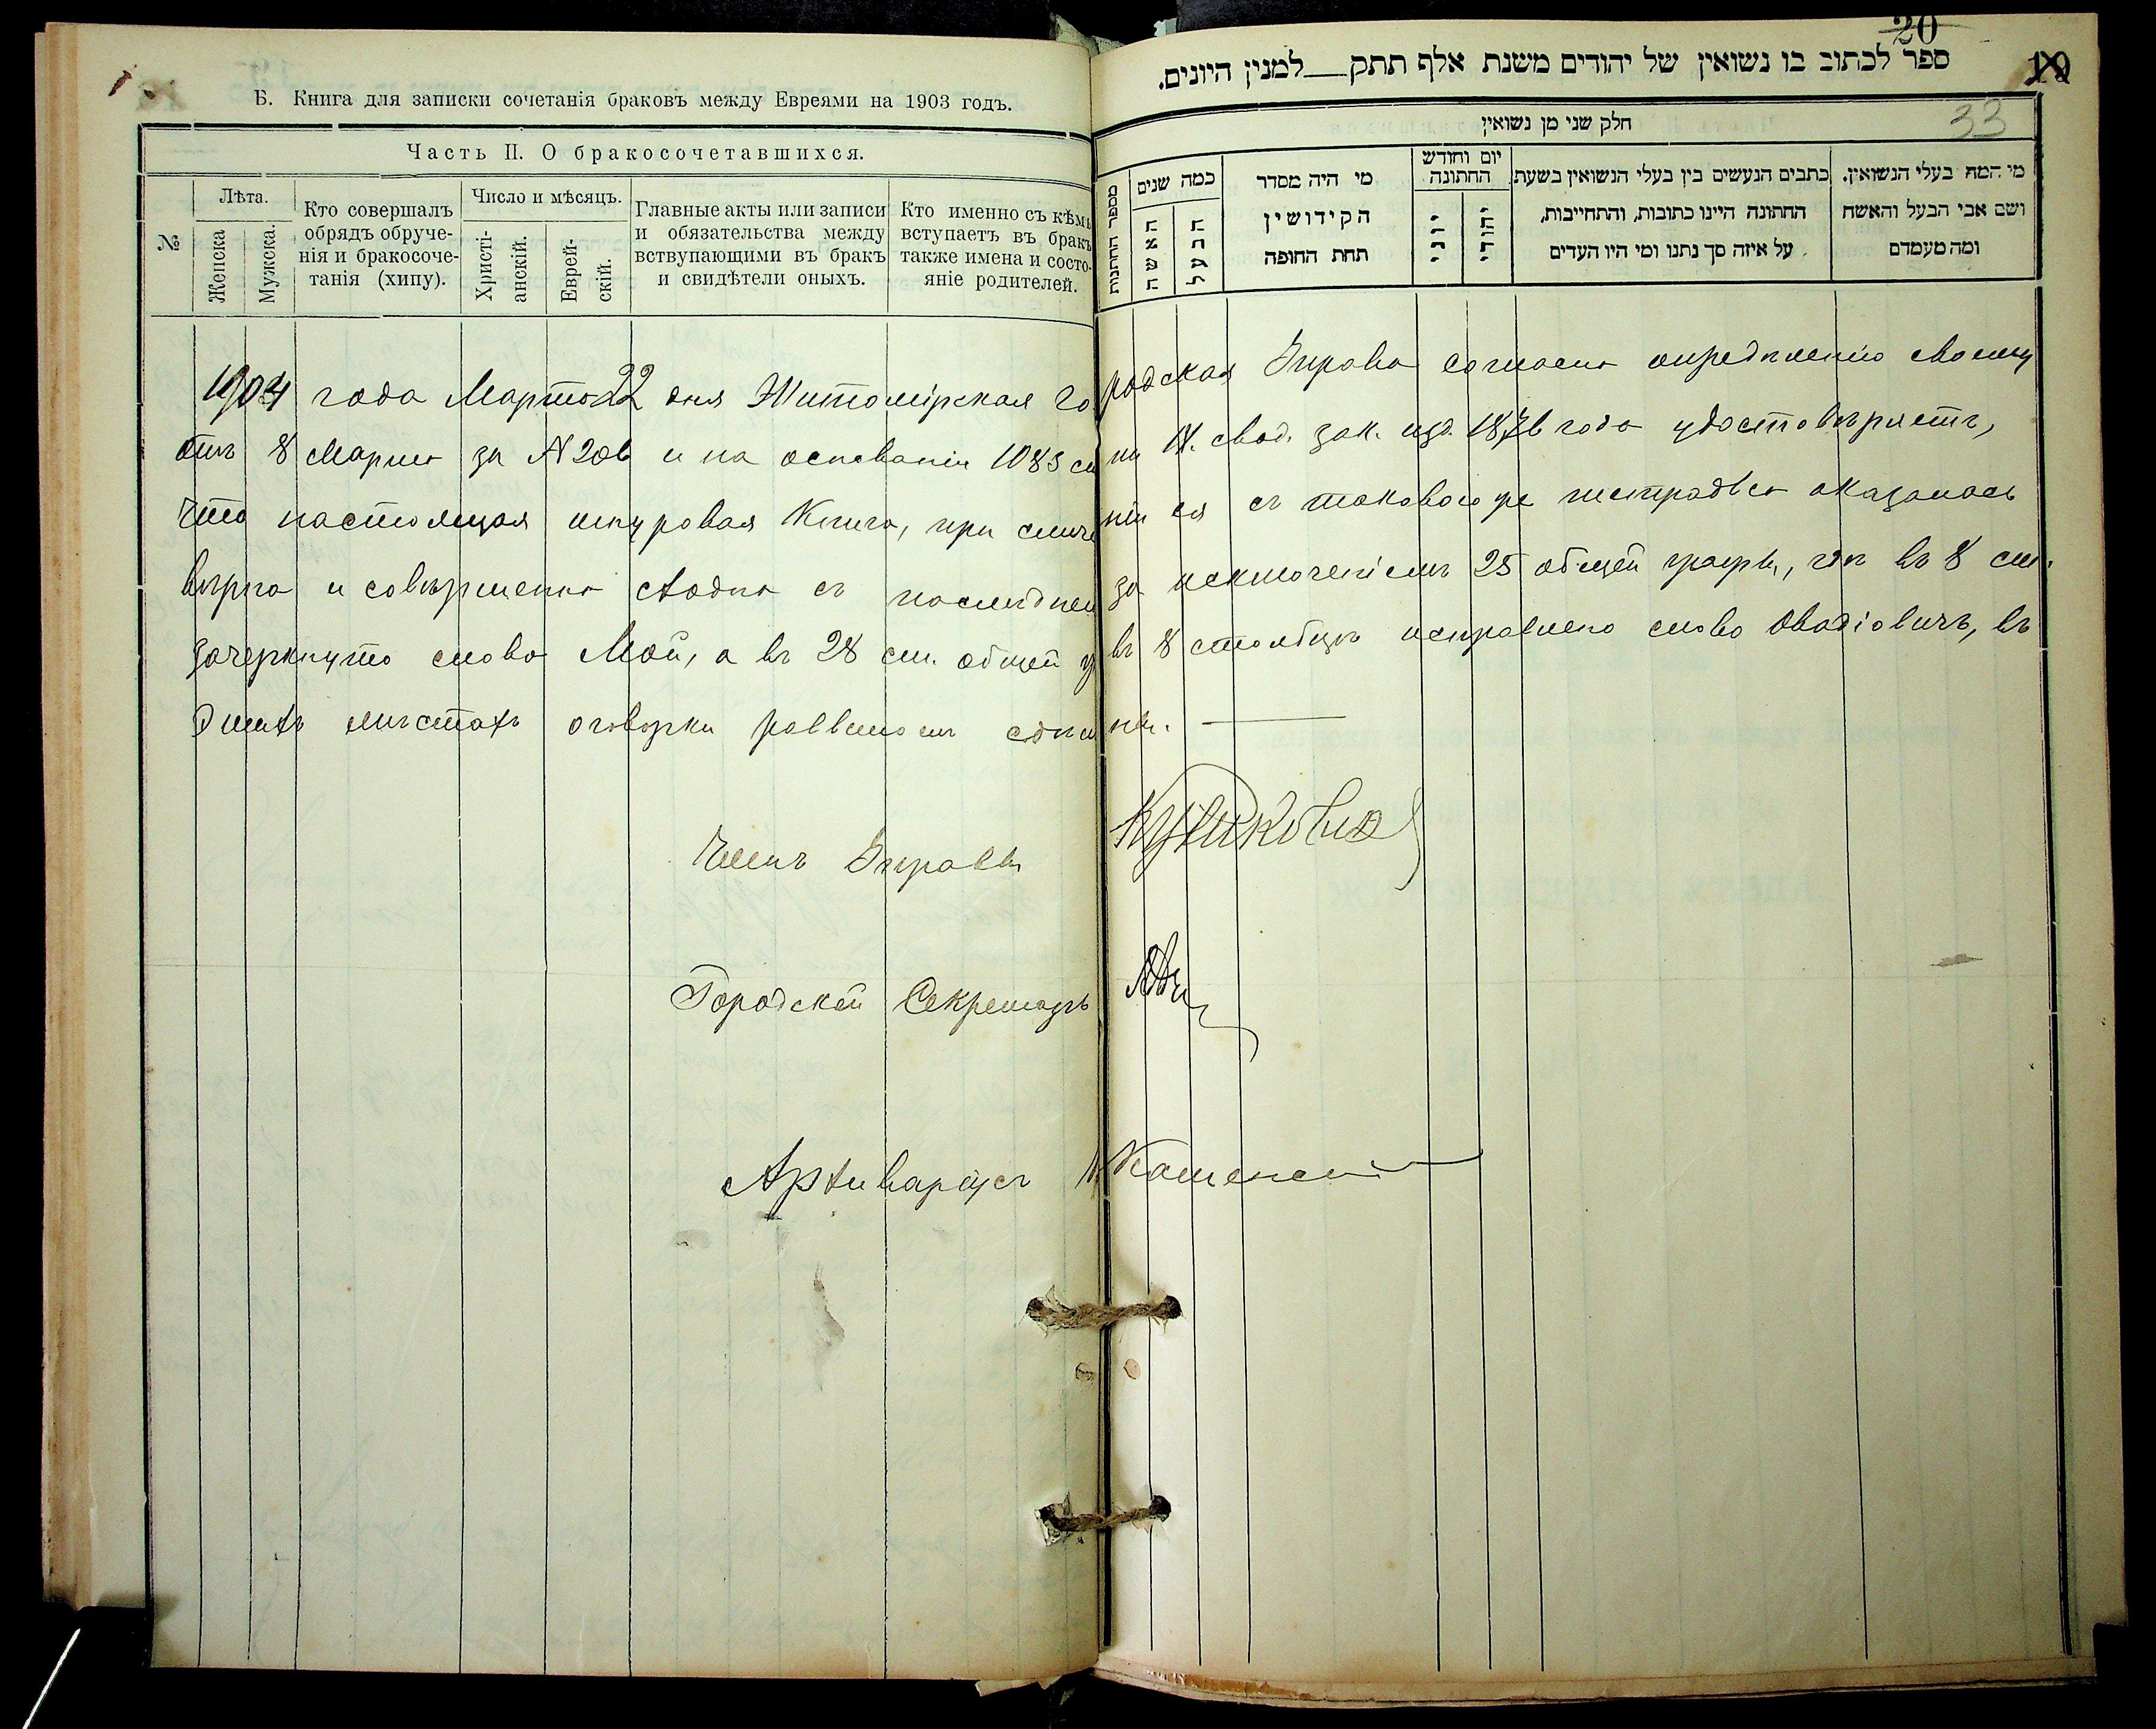 Б. Книга для записки сочетанія браковъ между Евреями на 1903 годъ.
Часть II. О бракосочетавшихся.
№
Лѣта.
Женска
Мужска.
Кто совершалъ
обрядъ обруче-
нія и бракосоче-
танія (хипу).
Число и мѣсяцъ.
Христі-
анскій.
Еврей-
скій.
Главные акты или записи
и обязательства между
вствупающими въ бракъ
и свидѣтели оныхъ.
Кто именно съ кѣмъ
вступаетъ въ бракъ
также имена и состо-
яніе родителей.
20
ספר לכתוב בו נשואין של יהודים משנת אלף תתק למנין היונים.
33
חלק שני מן נשואין
מספר החתנות
כמה שנים
האשה
הבעל
מי היה מסדר
הקידושין
תחת החופה
יום וחודש
החתונה
יוני
יהודי
כתבים הנעשים בין בעלי הנשואין בשעת
החתונה היינו כתובות, והתחייבות,
על איזה סך נתנו ומי היו העדים
מי המה בעלי הנשואין.
ושם אבי הבעל והאשה
ומה מעמדם
1904 года Марта 22 дня Житомірская городская Управа согласно опредѣленію своему
отъ 8 Марта за N 206 и на основаніи 1083 ст. IX. свод. зак. изд. 1876 года удостовѣряетъ,
что настоящая шнуровая Книга, при сличеніи ея съ таковою же тетрадью оказалась
вѣрна и совершенно сходна съ послѣдней за исключеніемъ 25 общей графы, гдѣ въ 8 ст.
зачеркнуто слово Май, а въ 28 ст. общей въ 8 столбцѣ исправлено слово Овадіовичъ, въ
этихъ мѣстахъ оговорки раввиномъ
Членъ Управы
Городской Секретарь
Архиваріусъ